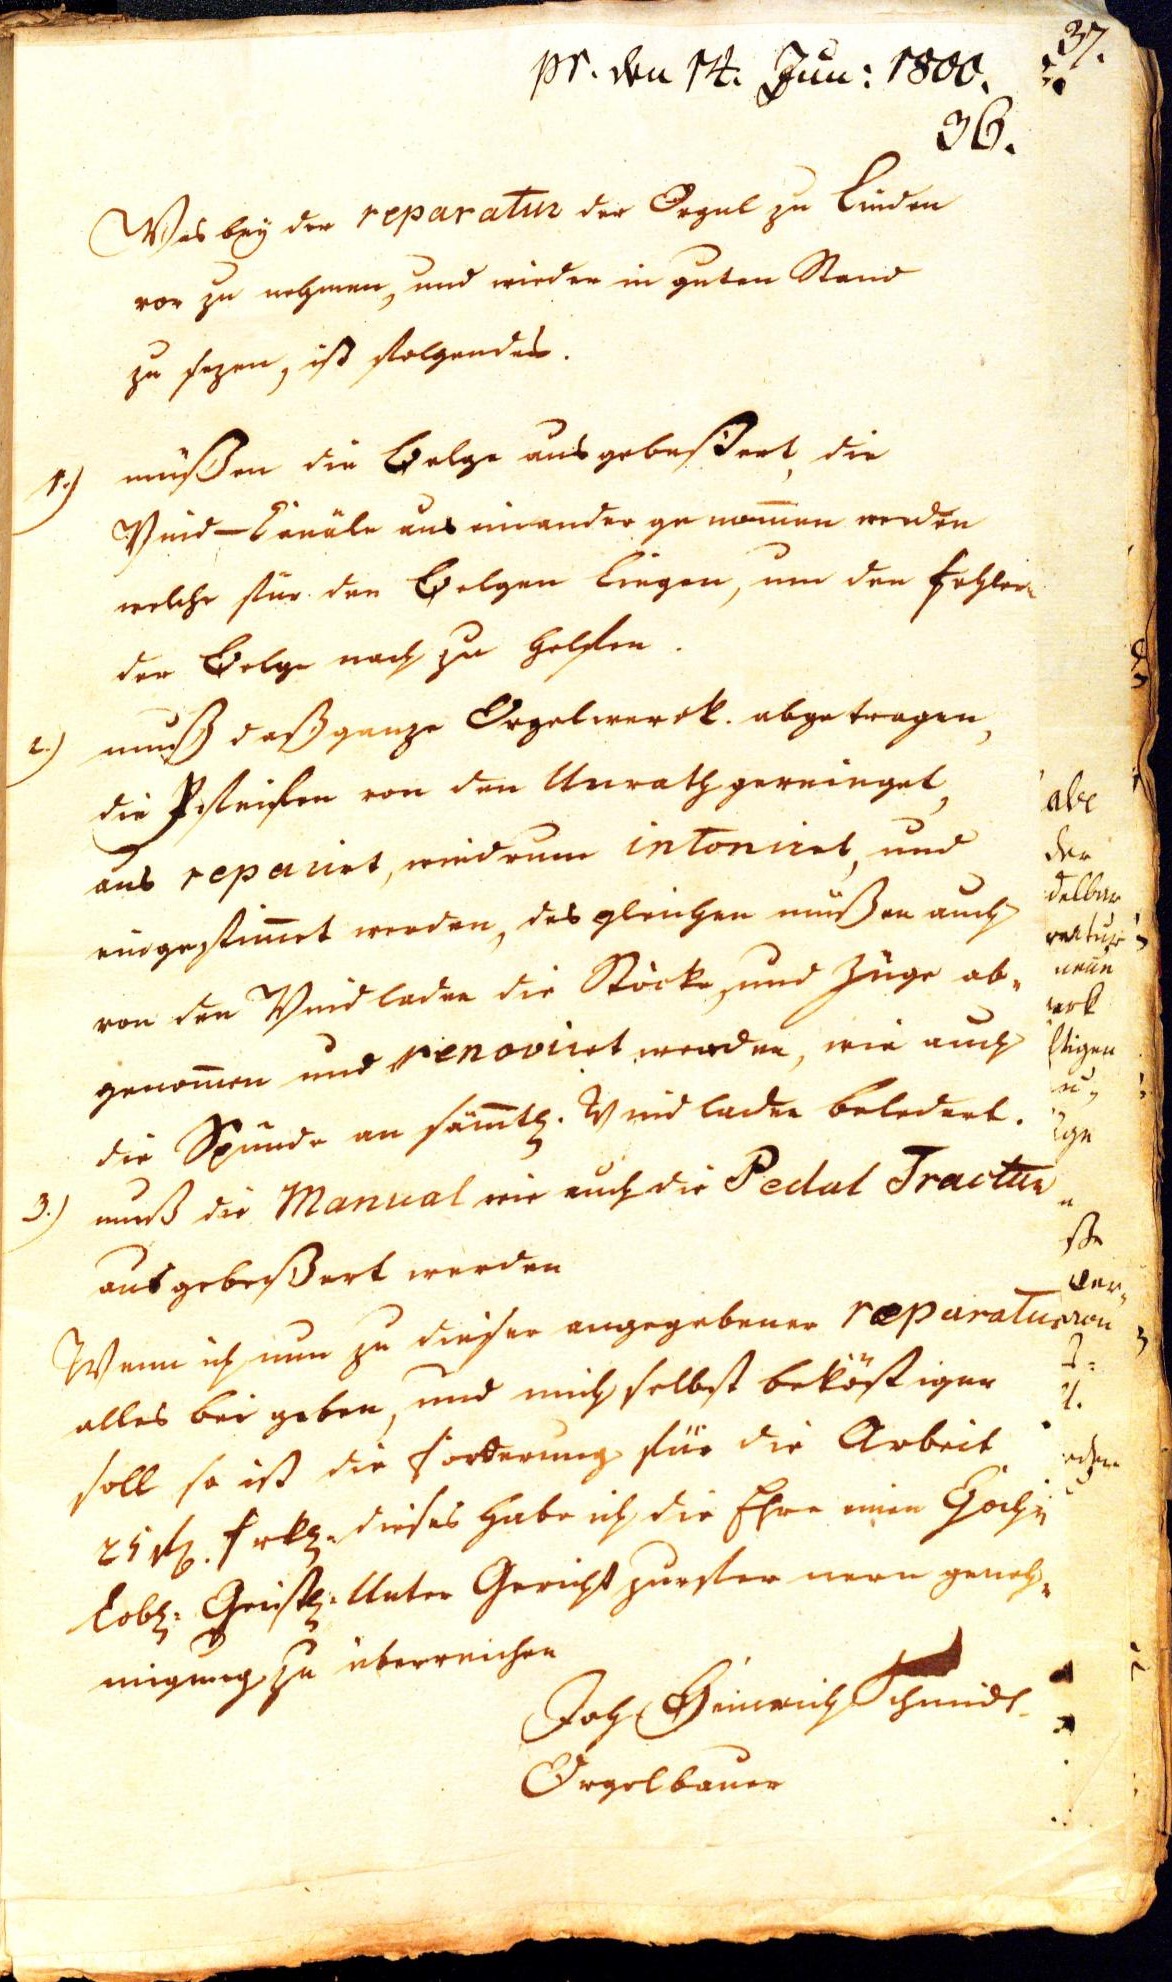 37.
pr. den 14. Jun: 1800.
36.
Was beÿ der reparatur der Orgel zu Linden
vor zu nehmen, und wieder in guten Stand
zu sezen, ist folgendes.
1.) müßen die Belge aus gebeßert, die
Wind-Canäle aus einander genom̄en werden
welche für den Belgen Liegen, um den fehler
der Belge nach zu helfen.
2.) muß daß ganze Orgelwerck. abgetragen,
die Pfeifen von den Unrath gereinget,
aus reparirt, wiedrum intonirt, und
eingestim̄et werden, des gleichen müßen auch
von den Windladen die Stöcke, und Züge ab-
genom̄en und renovirt werden, wie auch
die Spünde an säm̄tl. Windladen beledert.
3.) muß die Manual wie auch die Pedal Tractur
ausgebeßert werden
Wenn ich nun zu dieser angegebener reparatur
alles bei geben, und mich selbst beköstigen
soll so ist die forderung für die Arbeit
25 fl. frkl. dieses habe ich die Ehre einen Hoch-
Lobl: Geistl: Unter Gericht zur geneh-
migung zu überreichen
Joh Heinrich Schmidt
Orgelbauer